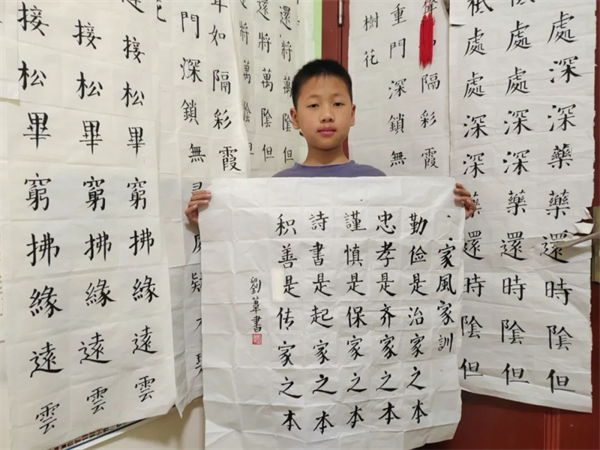 家風家訓
勤俭是治家之本
忠孝是齐家之本
謹慎是保家之本
詩書是起家之本
积善是传家之本
劉華書
處深藥還時陰但
處處深藥還時陰但
處處深藥還時陰但
隔彩霞
重門深鎖無
樹花
還將萬陰但
將萬陰但
如隔彩霞
深鎖無
接松畢窮拂緣遠雲
接松畢窮拂緣遠雲
接松畢窮拂緣遠雲